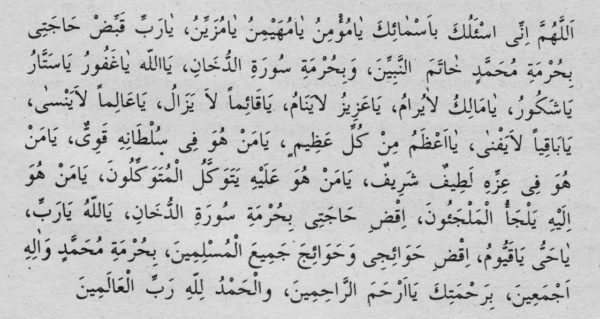 اَللّٰهُمَّ اِنِّى اسْئَلُكَ بِاَسْمٰائِكَ يٰامُؤْمِنُ يٰامُهَيْمِنُ يٰامُزَيِّنُ، يٰارَبِّ قَبِّضْ حَاجَتِى
بِحُرْمَةِ مُحَمَّدٍ خٰاتَمَ النَّبِيِّنَ، وَبِحُرْمَةِ سُورَةِ الدُّخَانِ، يَااَللّٰه يَاغَفُورُ يَاسَتَّارُ
يَاشَكُورُ، يٰامَالِكُ لاٰيُرامُ، يَاعَزِيزُ لاٰيَنَامُ، يَاقَائِماً لاَ يَزَالُ، يَاعَالِماً لاٰيَنْسٰى،
يَابَاقِياً لاٰيَفْنٰى، يٰااَعْظَمُ مِنْ كُلِّ عَظِيمٍ، يَامَنْ هُوَ فِى سُلْطَانِهِ قَوِىٌّ، يَامَنْ
هُوَ فِى عِزِّهِ لَطِيفٌ شَرِيفٌ، يَامَنْ هُوَ عَلَيْهِ يَتَوَكَّلُ الْمُتَوَكِّلُونَ، يَامَنْ هُوَ
اِلَيْهِ يَلْجَأُ الْمَلْجَئُونَ، اِقْضِ حَاجَتِى بِحُرْمَةِ سُورَةِ الدُّخَانِ، يَاللّٰهُ يَارَبِّ،
يٰاحَىُّ يَاقَيُّومُ، اِقْضِ حَوَائِجِى وَحَوَائِجَ جَمِيعَ الْمُسْلِمِينَ، بِحُرْمَةِ مُحَمَّدٍ وَاٰلِهِ
اَجْمَعِينَ، بِرَحْمَتِكَ يَااَرْحَمَ الرَّاحِمِينَ، والْحَمْدُ لِلّٰهِ رَبِّ الْعَالَمِينَ